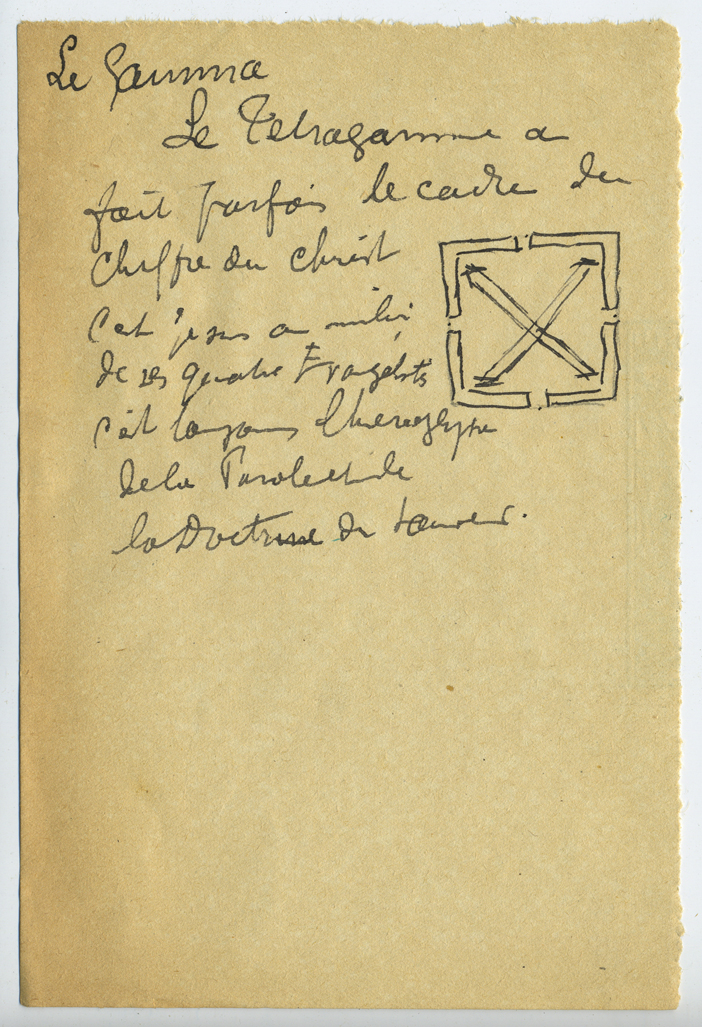 Le Gamma
Le Tetragamme a
fait parfois le cadre du
chiffre du Christ
c'est Jesus au milieu
de ses quatre Evangélistes
c'est toujours l'hieroglyphe
de la Parole et de
la Doctrine du Sauveur.